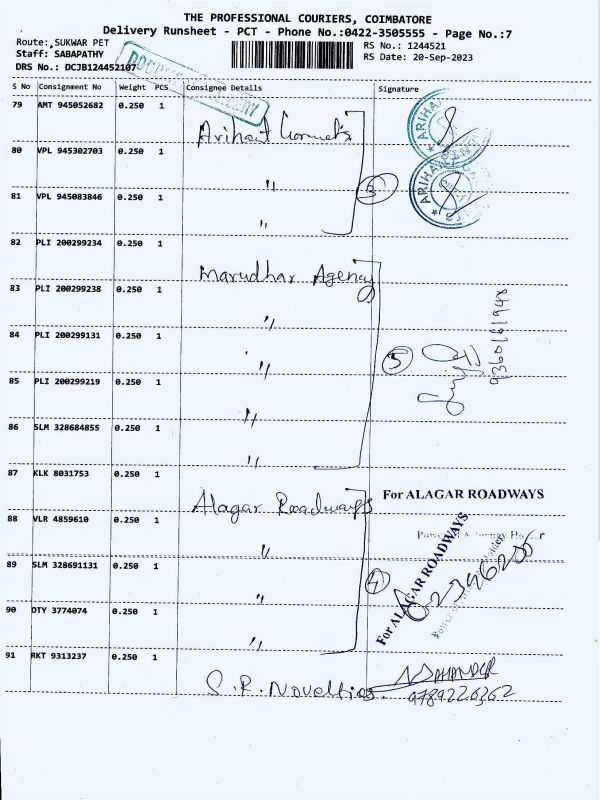 THE PROFESSIONAL COURIERS, COIMBATORE
Delivery Runsheet - PCT - Phone No.:0422-3505555 - Page No.:7
Route: SUKWAR PET
RS No.: 1244521
Staff: SABAPATHY
RS Date: 20-Sep-2023
DRS No.: DCJB124452107
S No Consignment No Weight PCS Consignee Details Signature
79 AMT 945052682 0.250 1 Arihant
ARIHA
80 VPL 945302703 0.250 1 "
3
ARIHA
81 VPL 945083846 0.250 1 "
82 PLI 200299234 0.250 1 Marudhar Agency
83 PLI 200299238 0.250 1 "
84 PLI 200299131 0.250 1 "
5
9360161948
85 PLI 200299219 0.250 1 "
86 SLM 328684855 0.250 1 "
87 KLK 8031753 0.250 1 Alagar Roadways
For ALAGAR ROADWAYS
88 VLR 4859610 0.250 1 "
For ALAGAR ROADWAYS
89 SLM 328691131 0.250 1 "
4
90 OTY 3774074 0.250 1 "
91 RKT 9313237 0.250 1 S.R. Novelties.
9789226262